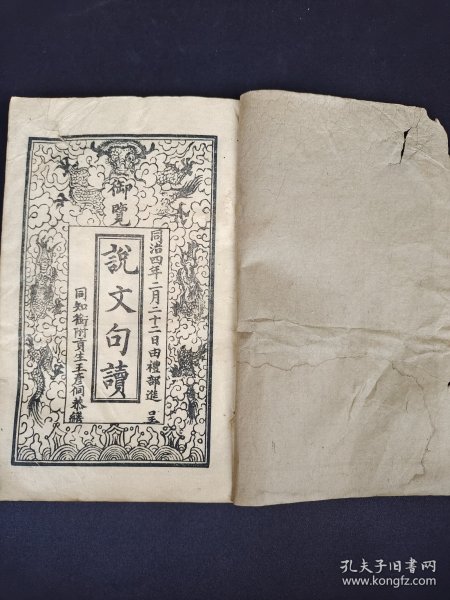 御覽
同治四年二月二十二日由禮部進呈
說文句讀
同知銜附貢生王彥侗恭繕
孔夫子旧书网
www.kongfz.com